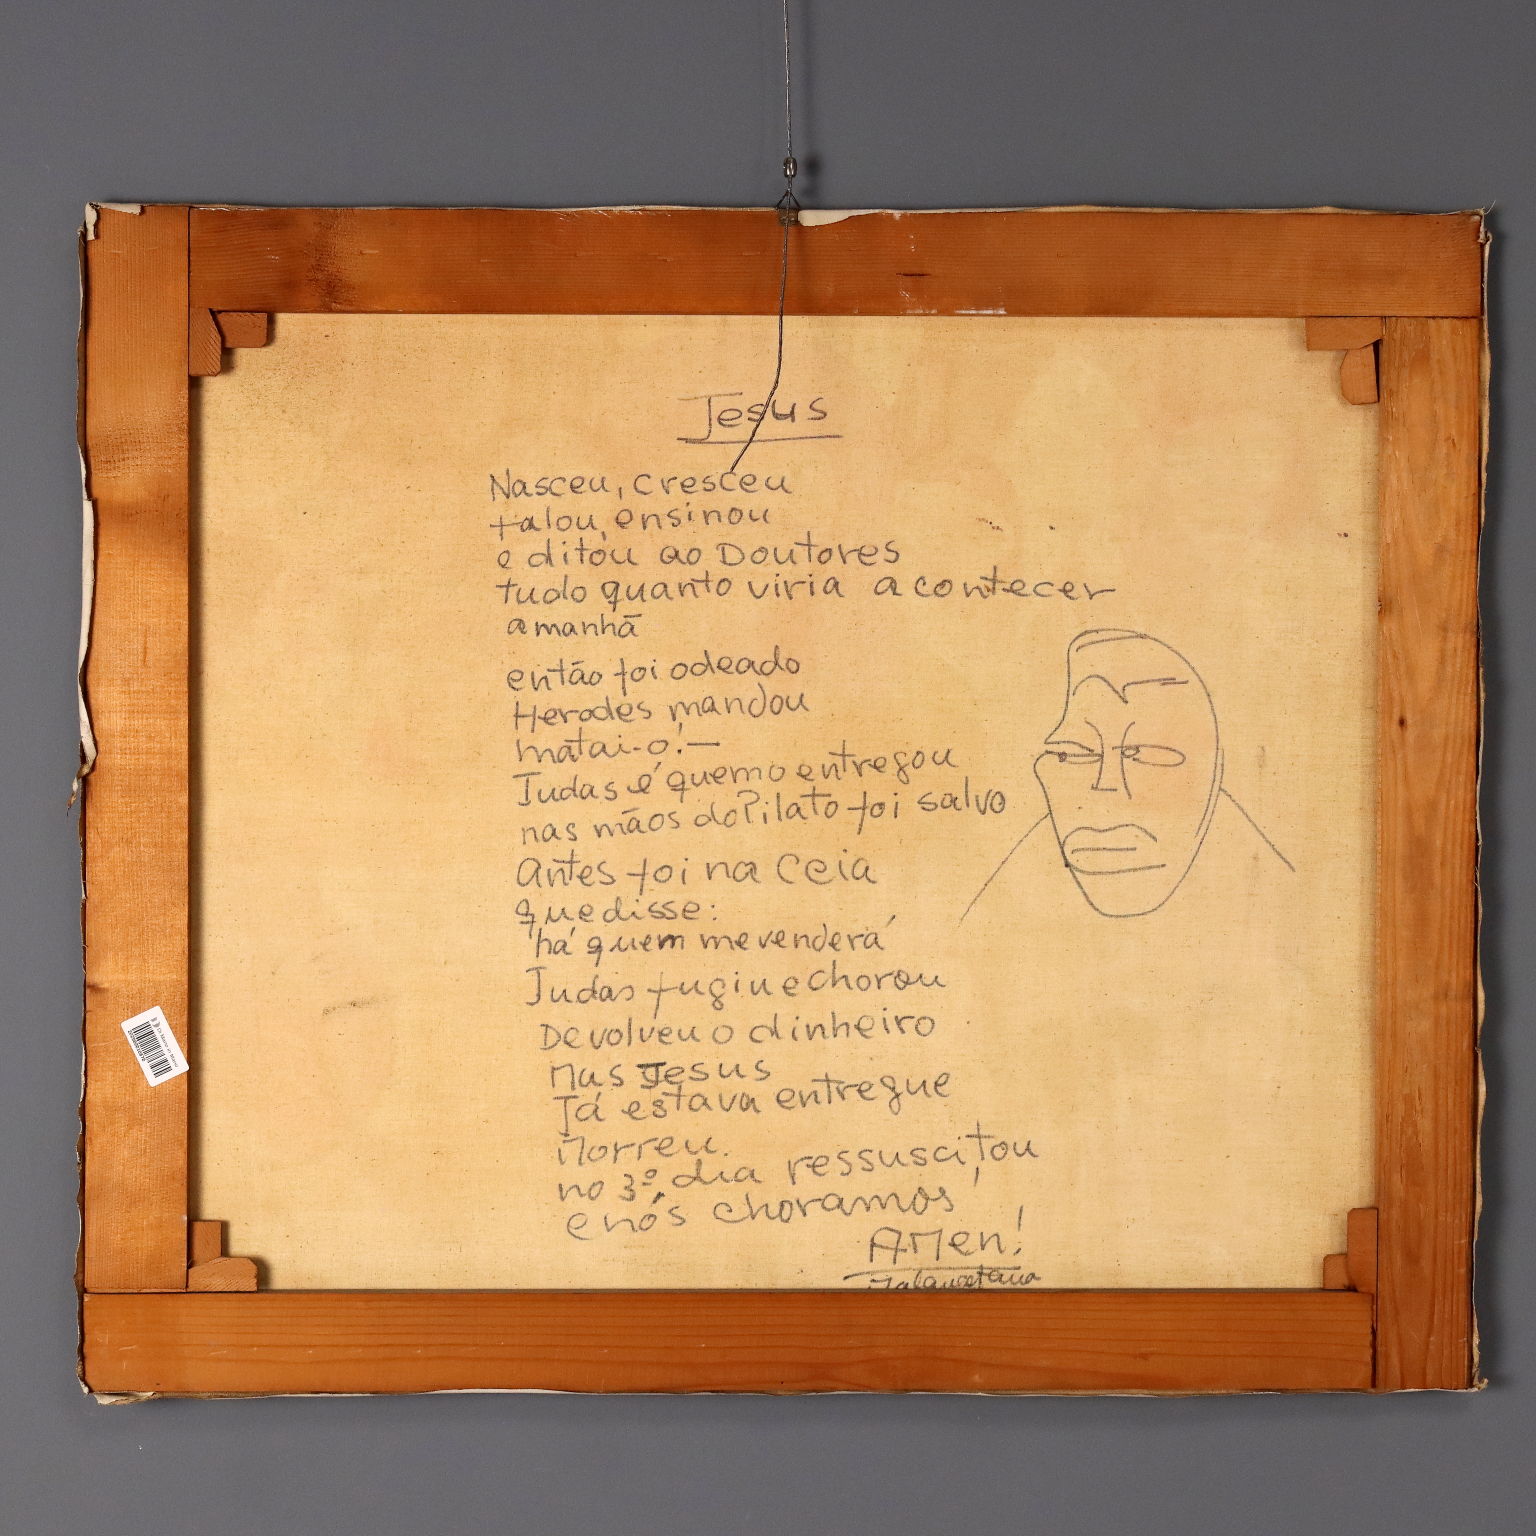 Jesus
Nasceu, cresceu
falou, ensinou
e ditou ao Doutores
tudo quanto viria acontecer
amanhã
então foi odeado
Herodes mandou
matai-o! —
Judas é quem o entregou
nas mãos do Pilato foi salvo
Antes foi na Ceia
que disse:
há quem me venderá
Judas fugiu e chorou
Devolveu o dinheiro
Mas Jesus
Já estava entregue
Morreu.
no 3º dia ressuscitou
e nós choramos
AMen!
Malangatana
Di Mano in Mano